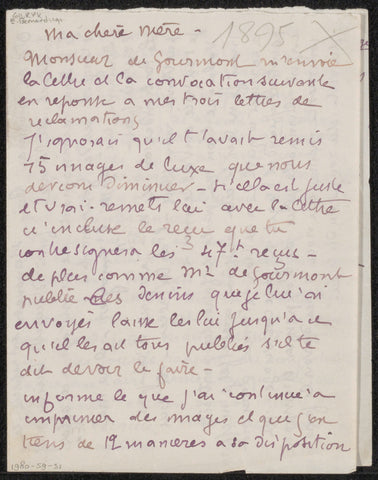 ma chère mère -
1895
Monsieur de Gourmont m'envoie
la lettre et la convocation suivante
en reponse a mes trois lettres de
reclamations
J'ignorais qu'il t'avait remis
15 images de luxe que nous
devions Diminuer - si cela est juste
et vrai - remets lui avec la lettre
ci incluse le reçu que tu
contresignera les 47f reçus -
de plus comme Mr de Gourmont
publie des dessins que je lui ai
envoyés laisse les lui jusqu'a ce
qu'il les ait tous publiés s'il te
dit devoir le faire -
informe le que j'ai continué a
imprimer des images et que j'en
tiens de 12 manières a sa disposition
1980-59-51